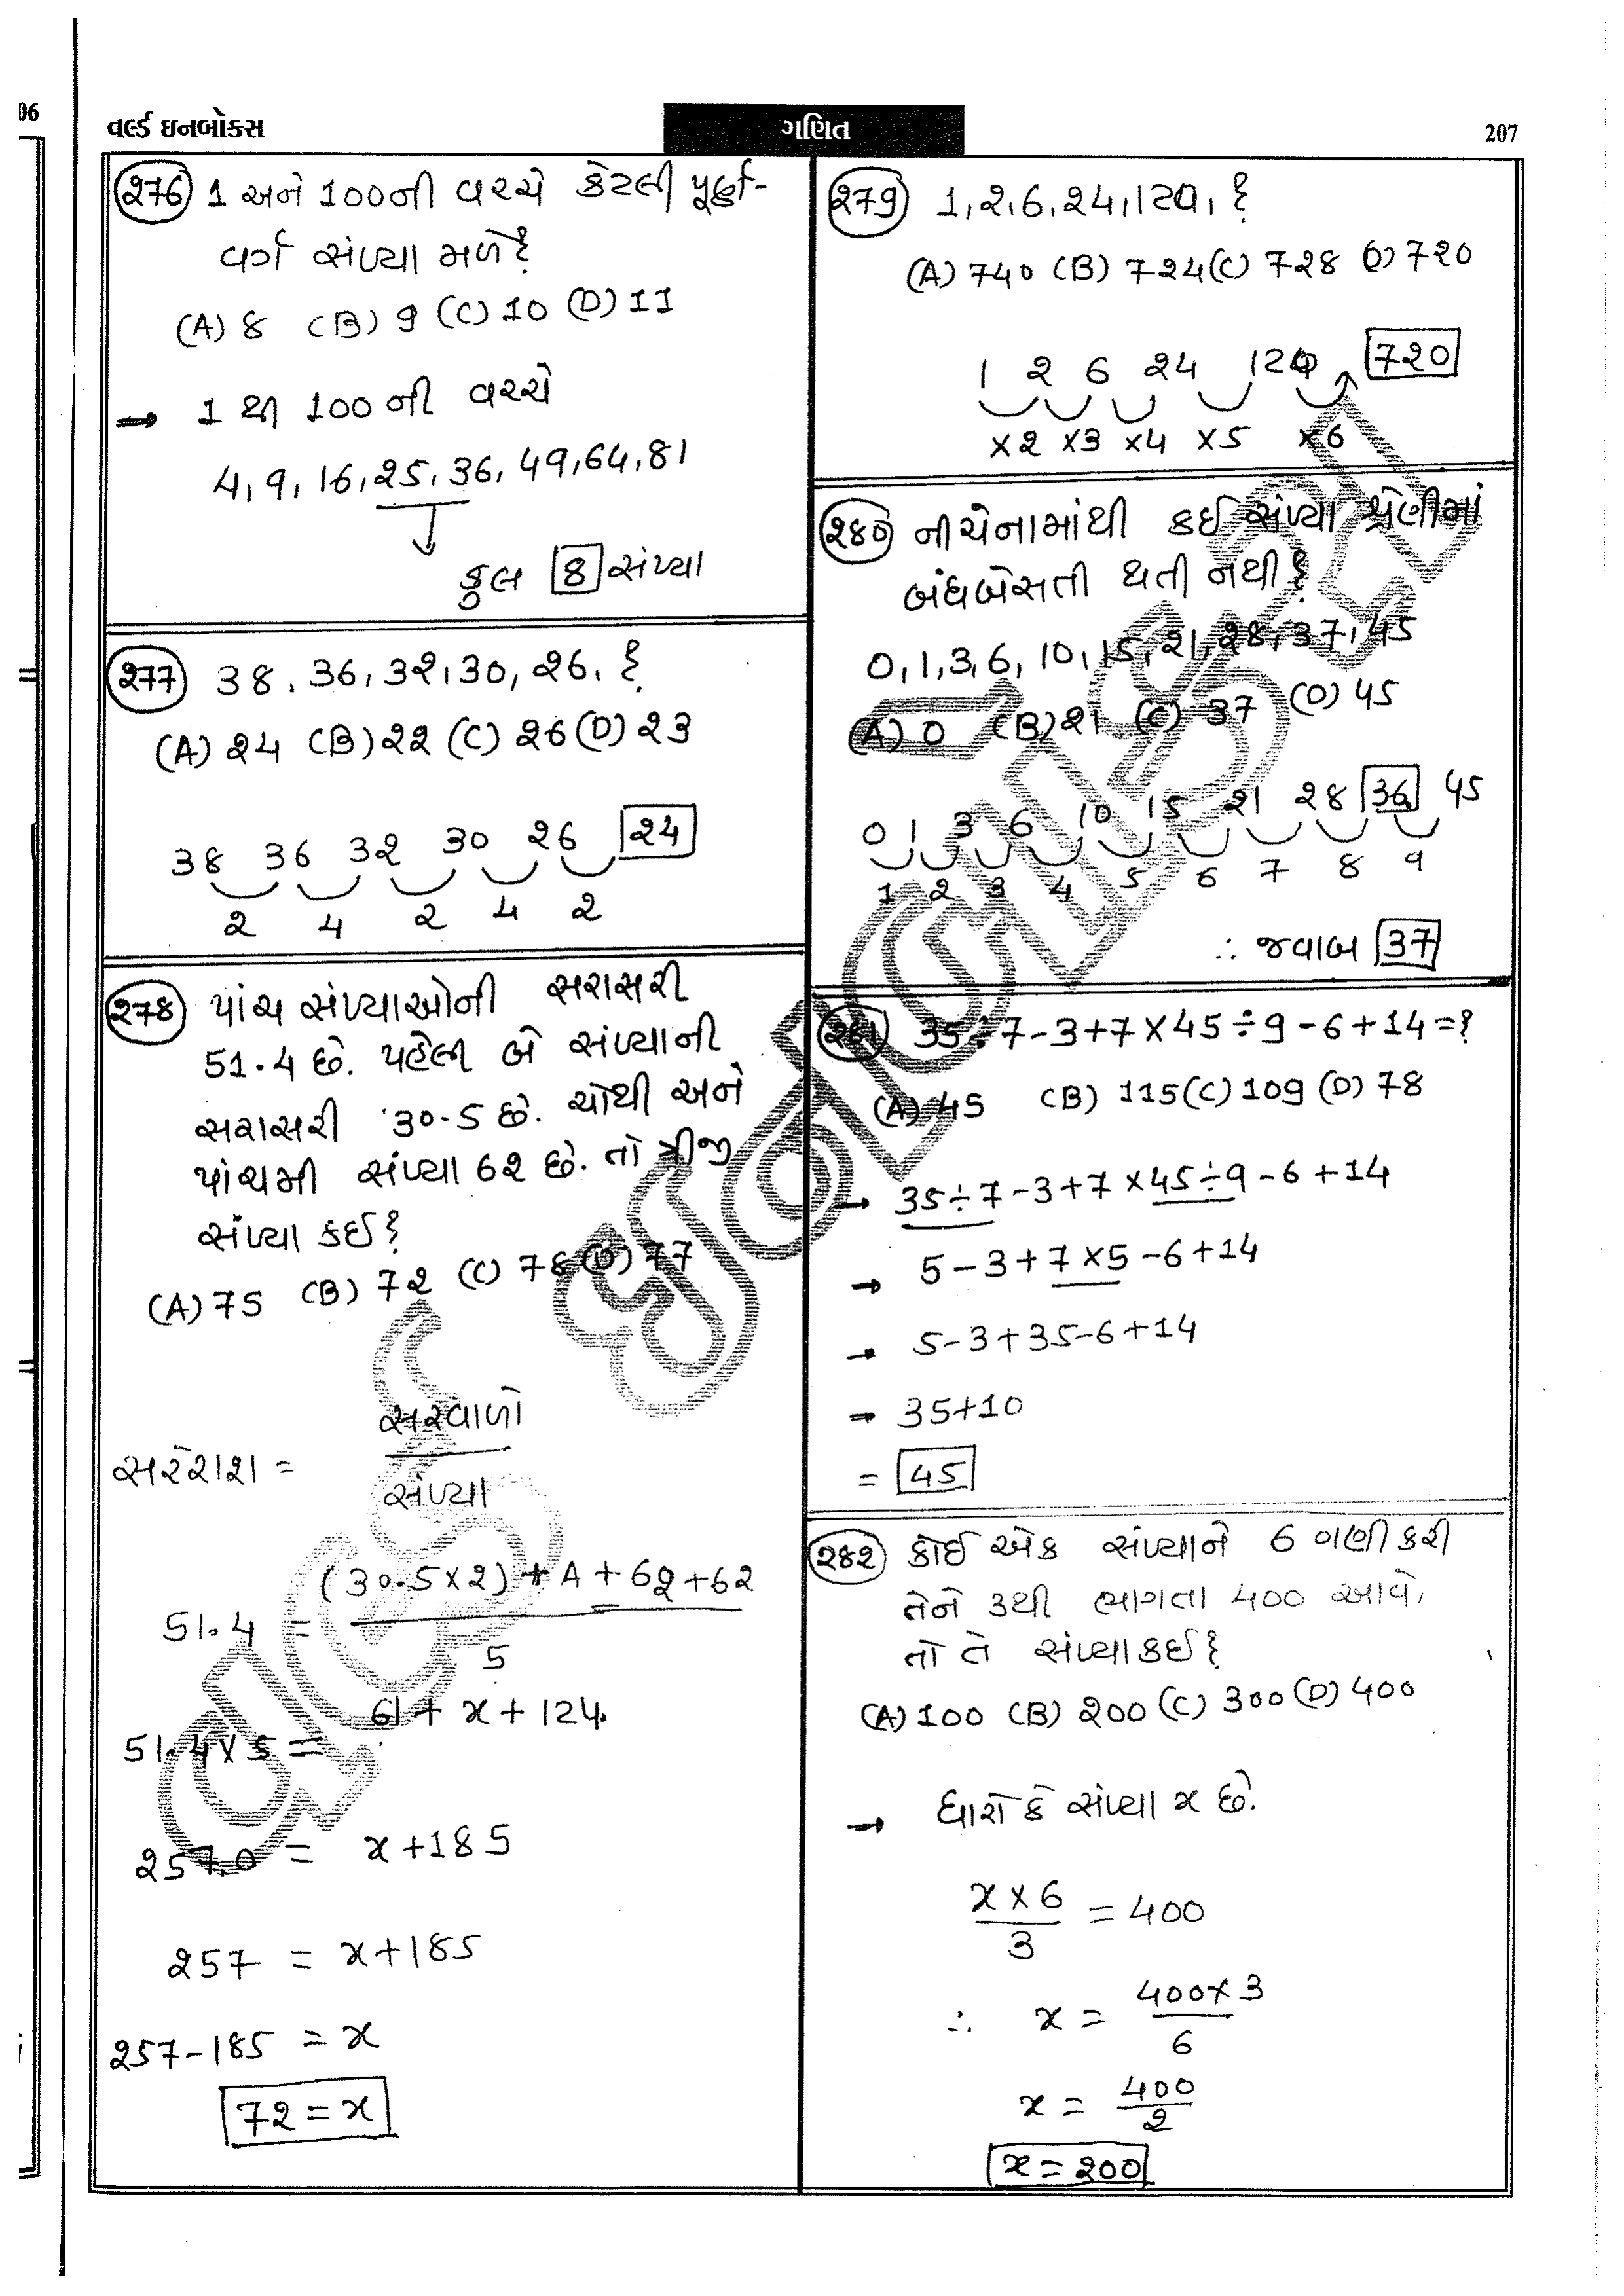 06
વર્લ્ડ ઇનબોક્સ
ગણિત
207
(૨૭૬) 1 અને 100ની વચ્ચે કેટલી પૂર્ણ-
વર્ગ સંખ્યા મળે?
(A) 8 (B) 9 (C) 10 (D) 11
→ 1 થી 100 ની વચ્ચે
4, 9, 16, 25, 36, 49, 64, 81
કુલ 8 સંખ્યા
(૨૭૭) 38, 36, 3૨, 30, ૨6, ?
(A) ૨4 (B) ૨૨ (C) ૨6 (D) ૨3
38 36 3૨ 30 ૨6 ૨4
૨ 4 ૨ 4 ૨
(૨૭૮) પાંચ સંખ્યાઓની સરાસરી
51.4 છે. પહેલી બે સંખ્યાની
સરાસરી 30.5 છે. ચોથી અને
પાંચમી સંખ્યા 6૨ છે. તો ત્રીજી
સંખ્યા કઈ?
(A) 75 (B) 7૨ (C) 78 (D) 77
સરેરાશ = સરવાળો
સંખ્યા
51.4 = (30.5 × 2) + A + 6૨ + 62
5
51.4 × 5 = 61 + x + 124
૨57.0 = x + 185
૨57 = x + 185
૨57 - 185 = x
7૨ = x
(૨૭૯) 1, ૨, 6, ૨4, 120, ?
(A) 740 (B) 7૨4 (C) 7૨8 (D) 7૨0
1 ૨ 6 ૨4 120 7૨0
×૨ ×3 ×4 ×5 ×6
(૨૮૦) નીચેનામાંથી કઈ સંખ્યા શ્રેણીમાં
બંધબેસતી થતી નથી?
0, 1, 3, 6, 10, 15, ૨1, ૨8, 37, 45
(A) 0 (B) ૨1 (C) 37 (D) 45
0 1 3 6 10 15 ૨1 ૨8 36 45
1 ૨ 3 4 5 6 7 8 9
∴ જવાબ 37
(૨૮૧) 35 ÷ 7 - 3 + 7 × 45 ÷ 9 - 6 + 14 = ?
(A) 45 (B) 115 (C) 109 (D) 78
→ 35 ÷ 7 - 3 + 7 × 45 ÷ 9 - 6 + 14
→ 5 - 3 + 7 × 5 - 6 + 14
→ 5 - 3 + 35 - 6 + 14
→ 35 + 10
= 45
(૨૮૨) કોઈ એક સંખ્યાને 6 ગણી કરી
તેને 3થી ભાગતા 400 આવે,
તો તે સંખ્યા કઈ?
(A) 100 (B) ૨00 (C) 300 (D) 400
→ ધારો કે સંખ્યા x છે.
x × 6 = 400
3
∴ x = 400 × 3
6
x = 400
૨
x = ૨00